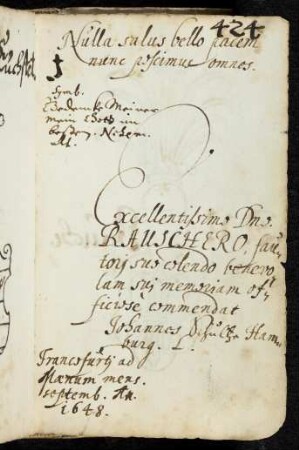 424
Nulla salus bello pacem
nunc poscimus omnes.
Symb.
Gedencke Meiner
mein Gott im
besten. Nehem.
Excellentissimo Dno.
RAUSCHERO, fau-
tori suo colendo benevo
lam sui memoriam of-
ficiosè commendat
Johannes Schultze Ham-
burg. L.
Francofurti ad
Mænum mens.
septemb. An.
1648.